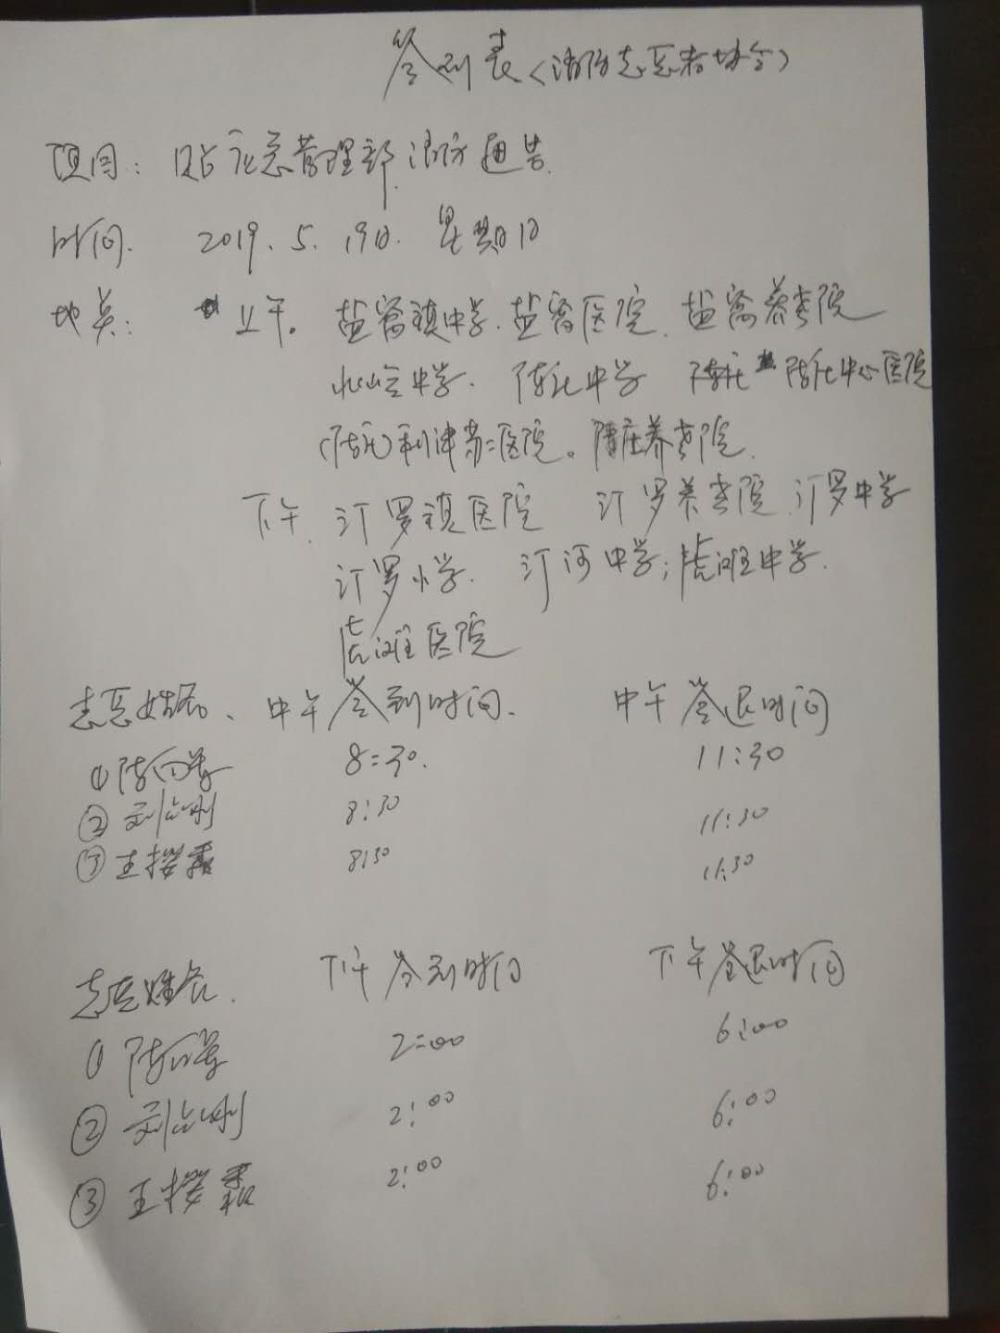 签到表(消防志愿者协会)
项目: 贴应急管理部消防通告.
时间. 2019.5.19日. 星期日
地点: 上午. 盐窝镇中学. 盐窝医院. 盐窝养老院
北岭中学. 陈庄中学 陈庄 陈庄中心医院
(陈庄)利津第二医院。陈庄养老院.
下午. 汀罗镇医院 汀罗养老院 汀罗中学
汀罗小学. 汀河中学; 虎滩中学.
虎滩医院
志愿姓名、中午签到时间. 中午签退时间
① 陈 8:30. 11:30
② 刘 8:30 11:30
③ 王 8:30 11:30
志愿姓名. 下午签到时间 下午签退时间
① 陈 2:00 6:00
② 刘 2:00 6:00
③ 王 2:00 6:00